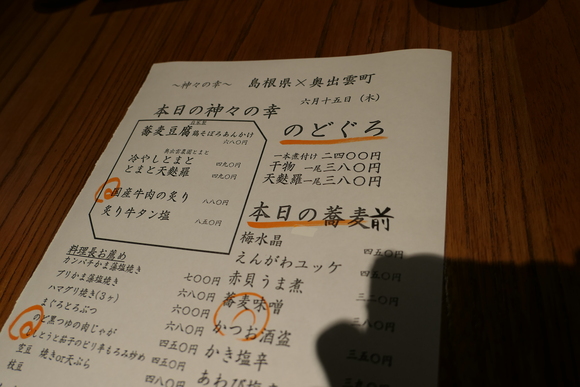 ～神々の幸～ 島根県×奥出雲町
六月十五日（木）
本日の神々の幸
蕎麦豆腐 鶏そぼろあんかけ
六八〇円
奥出雲農園とまと
冷やしとまと 四九〇円
とまと天麩羅 四九〇円
国産牛肉の炙り 八八〇円
炙り牛タン塩 八五〇円
のどぐろ
一本煮付け 二四〇〇円
干物 一尾 三八〇円
天麩羅 一尾 三八〇円
本日の蕎麦前
梅水晶 四五〇円
えんがわユッケ 四五〇円
赤貝うま煮 三二〇円
蕎麦味噌 三八〇円
かつお酒盗
かき塩辛 三五〇円
料理長お薦め
カンパチかま藻塩焼き 七〇〇円
ブリかま藻塩焼き 六八〇円
ハマグリ焼き(３ヶ) 六〇〇円
まぐろとろぶつ 六八〇円
のど黒つゆの肉じゃが 四五〇円
ししとうと茄子のピリ辛もろみ炒め 五五〇円
空豆 焼きor天ぷら 四八〇円
枝豆